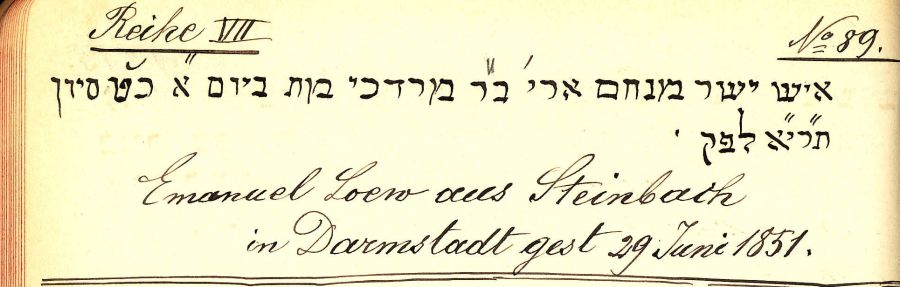 Reihe VII
No 89.
איש ישר מנחם ארי׳ ב״ר מרדכי מת ביום א׳ כ״ט סיון
תרי״א לפק .
Emanuel Loew aus Steinbach
in Darmstadt gest 29 Juni 1851.